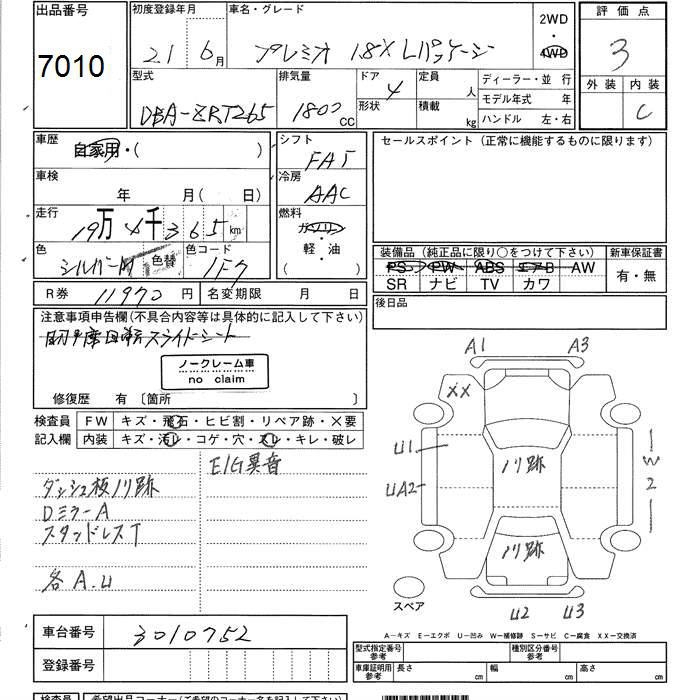 出品番号 初度登録年月 車名・グレード 2WD・4WD 評価点
7010 21 6月 プレミオ 1.8X Lパッケージ 3
型式 排気量 ドア 定員 ディーラー・並 行 外装 内装
DBA-ZRT265 1800 CC 4 人 モデル年式 年 C
形状 積載 kg ハンドル 左・右
車歴 自家用・( ) シフト セールスポイント (正常に機能するものに限ります)
FAT
車検 年 月( 日) 冷房
AAC
走行 19万4千365km 燃料
ガソリン
軽・油
( )
色 シルバーM 色替 色コード 1F7
装備品 (純正品に限り○をつけて下さい) 新車保証書
PS PW ABS エアB AW 有・無
SR ナビ TV カワ
R券 11970円 名変期限 月 日 後日品
注意事項申告欄(不具合内容等は具体的に記入して下さい)
助手席回転スライドシート
ノークレーム車
no claim
修復歴 有 〔箇所 〕
検査員 FW キズ・飛石・ヒビ割・リペア跡・X要
記入欄 内装 キズ・汚レ・コゲ・穴・スレ・キレ・破レ
E/G異音
ダッシュ板ノリ跡
Dミラー A
スタッドレスT
各A.U
A1 A3
XX
U1
UA2
ノリ跡
W2
ノリ跡
U2 U3
スペア
A―キズ E―エクボ U―凹み W―補修跡 S―サビ C―腐食 XX―交換済
車台番号 3010752
登録番号
型式指定番号 参考 種別区分番号 参考
車庫証明用 参考 長さ cm 幅 cm 高さ cm
検査員 希望出品コーナー(ご希望のコーナー名を記入下さい)